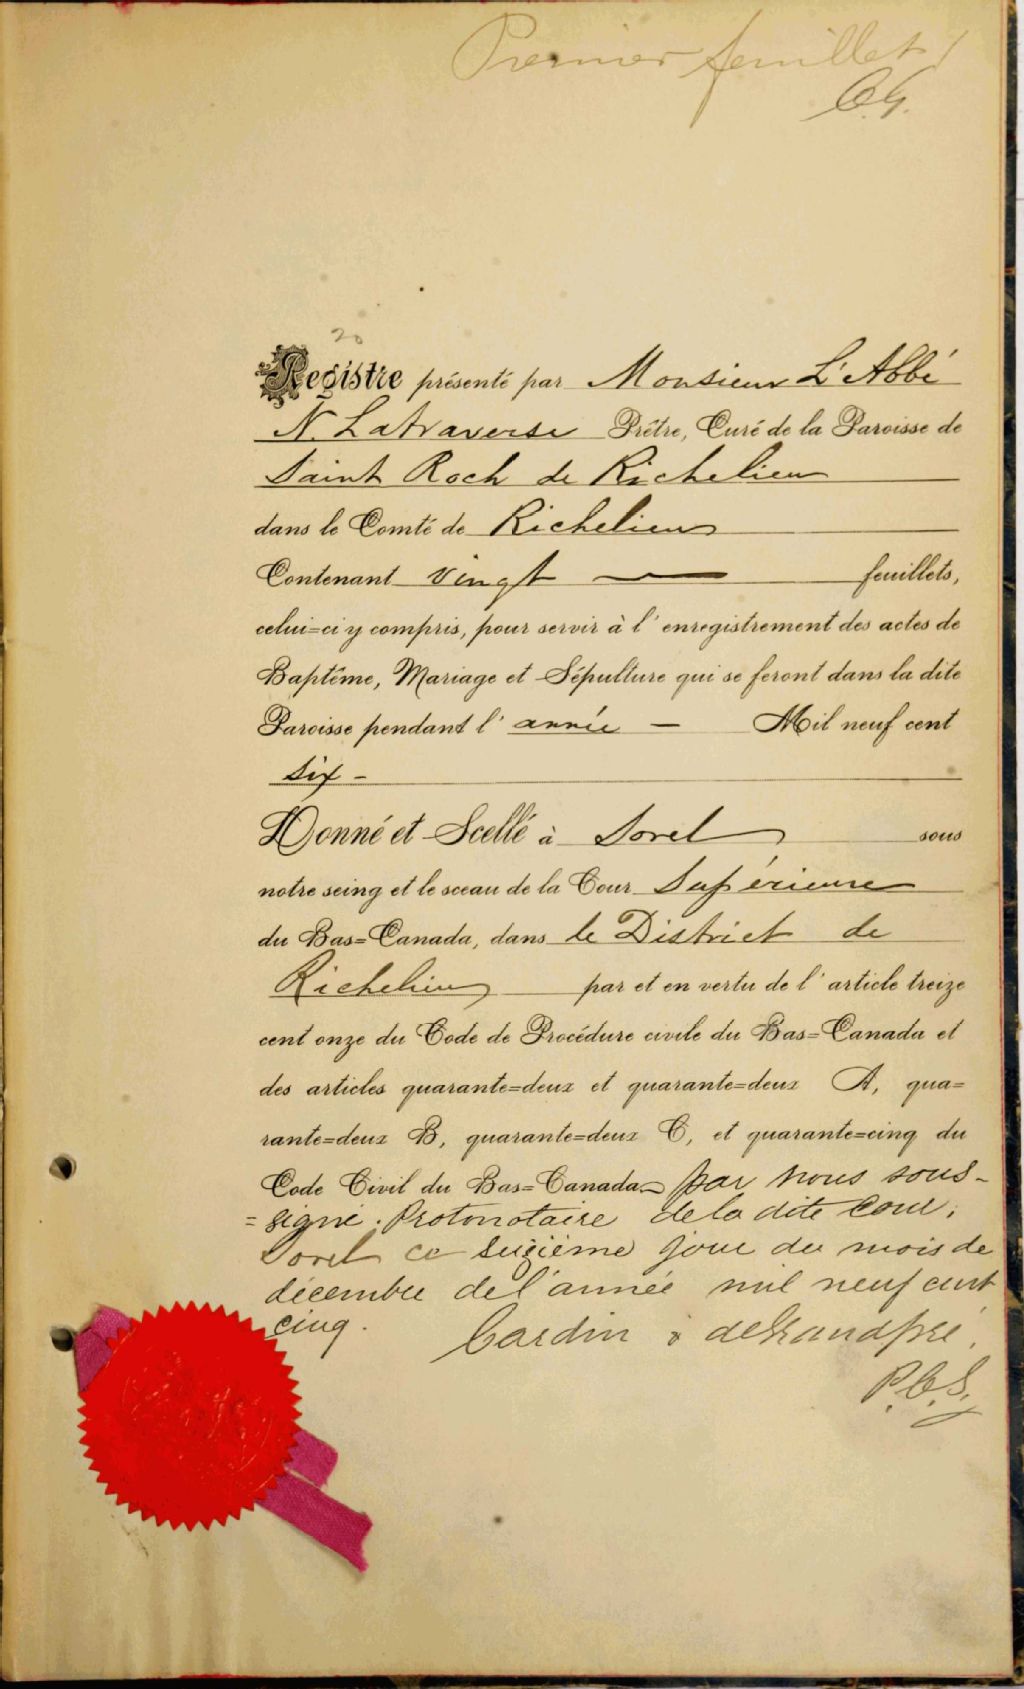 Premier feuillet
C.G.
20
Registre présenté par Monsieur L'Abbé
N. Latraverse Prêtre, Curé de la Paroisse de
Saint Roch de Richelieu
dans le Comté de Richelieu
Contenant vingt feuillets,
celui=ci y compris, pour servir à l'enregistrement des actes de
Baptême, Mariage et Sépulture qui se feront dans la dite
Paroisse pendant l'année — Mil neuf cent
six -
Donné et Scellé à Sorel sous
notre seing et le sceau de la Cour Supérieure
du Bas=Canada, dans le District de
Richelieu par et en vertu de l'article treize
cent onze du Code de Procédure civile du Bas=Canada et
des articles quarante=deux et quarante=deux A, qua=
rante=deux B, quarante=deux C, et quarante=cinq du
Code Civil du Bas=Canada par nous sous-
=signé Protonotaire de la dite Cour,
Sorel ce seizième jour du mois de
décembre de l'année mil neuf cent
cinq. Cardin & deGrandpré,
P.C.S.